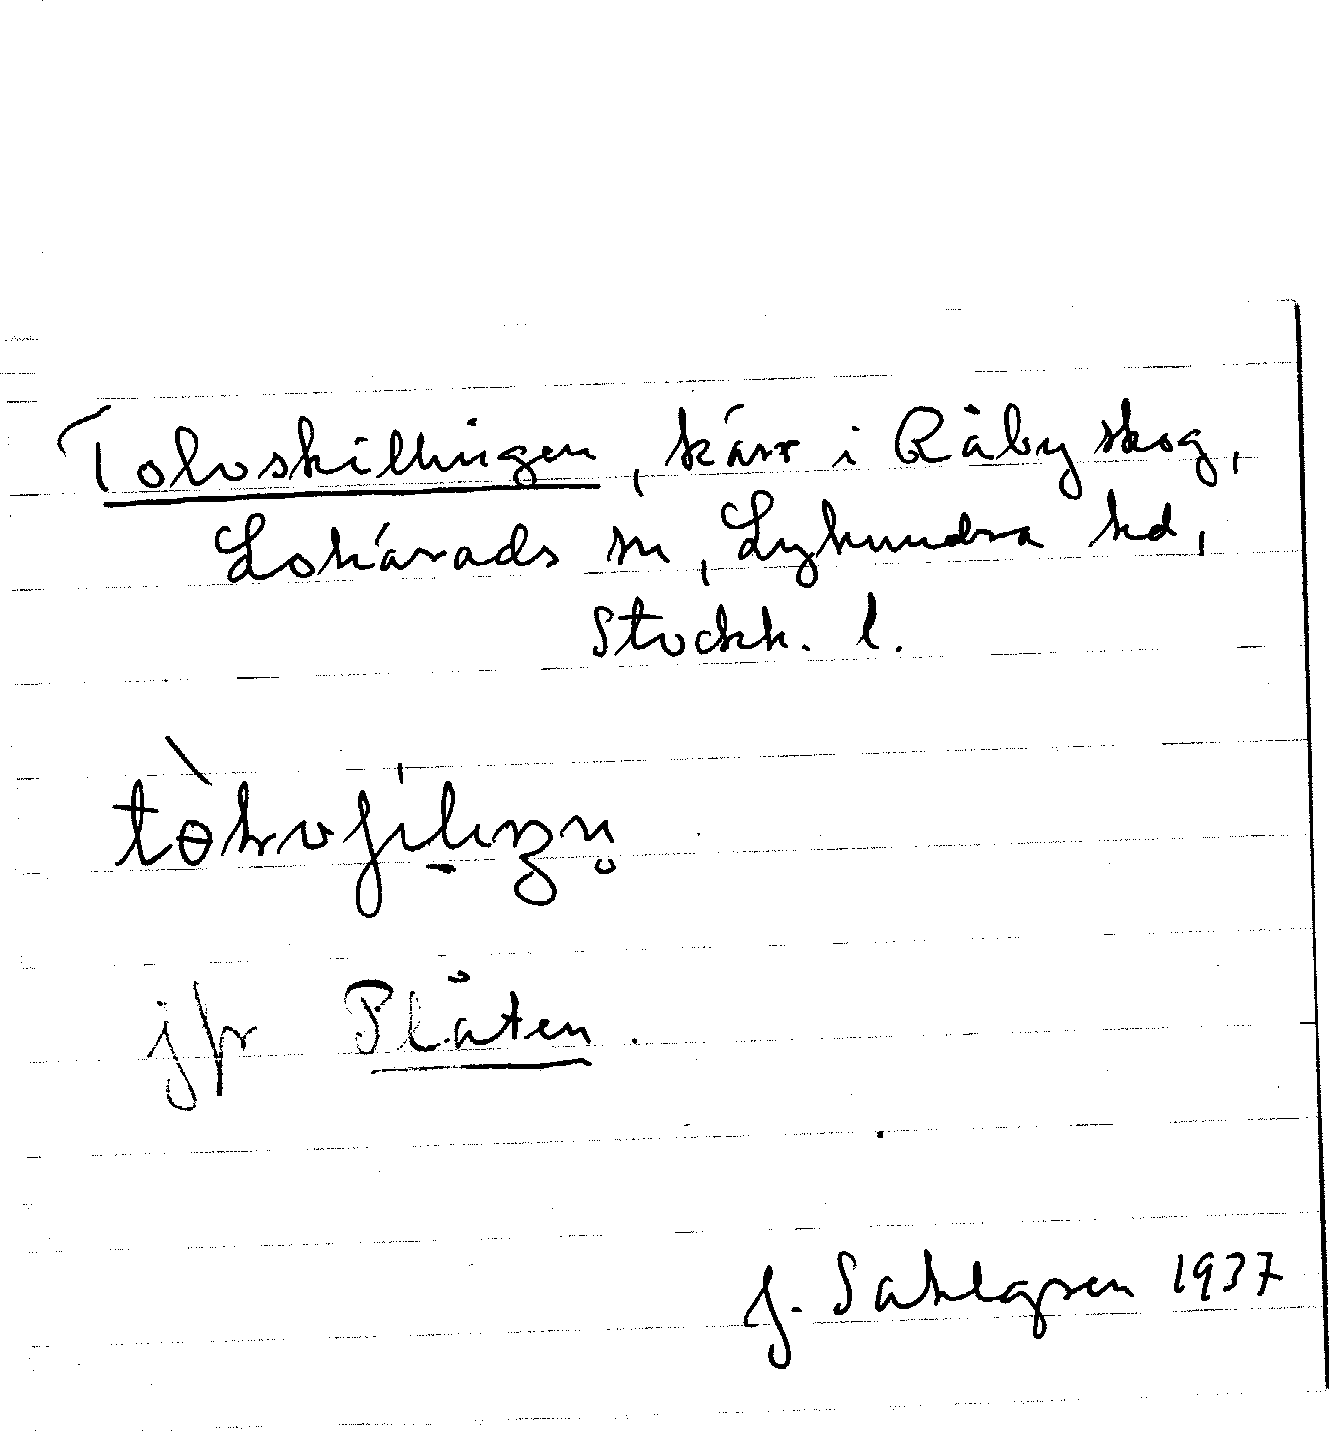 Tolvskillingen, kärr i Råby skog,
Lohärads sn, Lyhundra hd,
Stockh. l.
jfr Plåten.
J. Sahlgren 1937